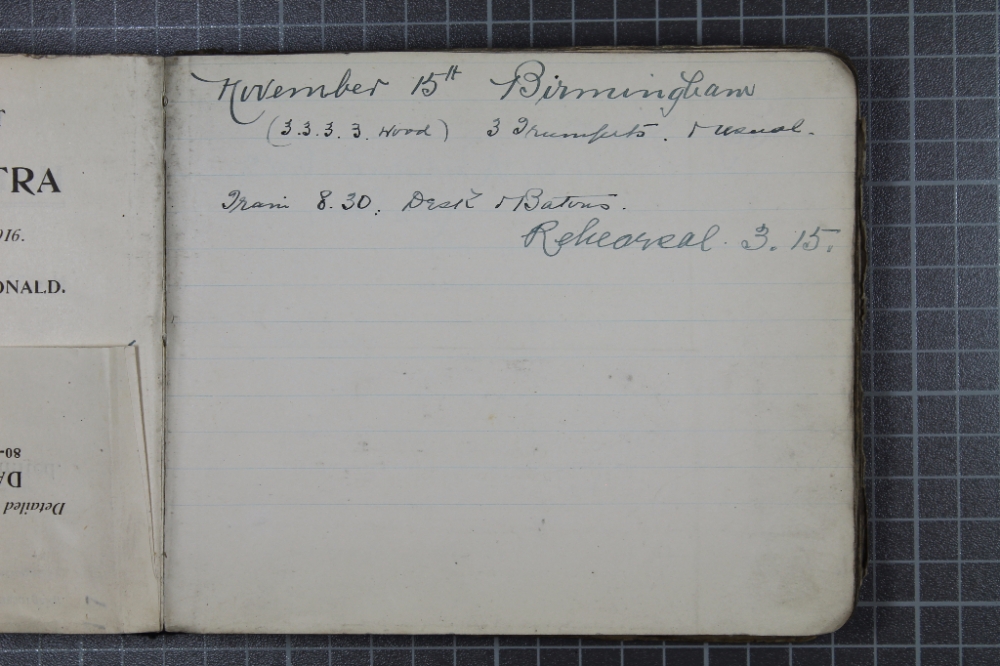 TRA
1916.
ONALD.
80-
DA
Detailed
November 15th Birmingham
(3.3.3.3. Wood) 3 Trumpets. & usual.
Train 8.30. Desk & Batons.
Rehearsal 3.15.